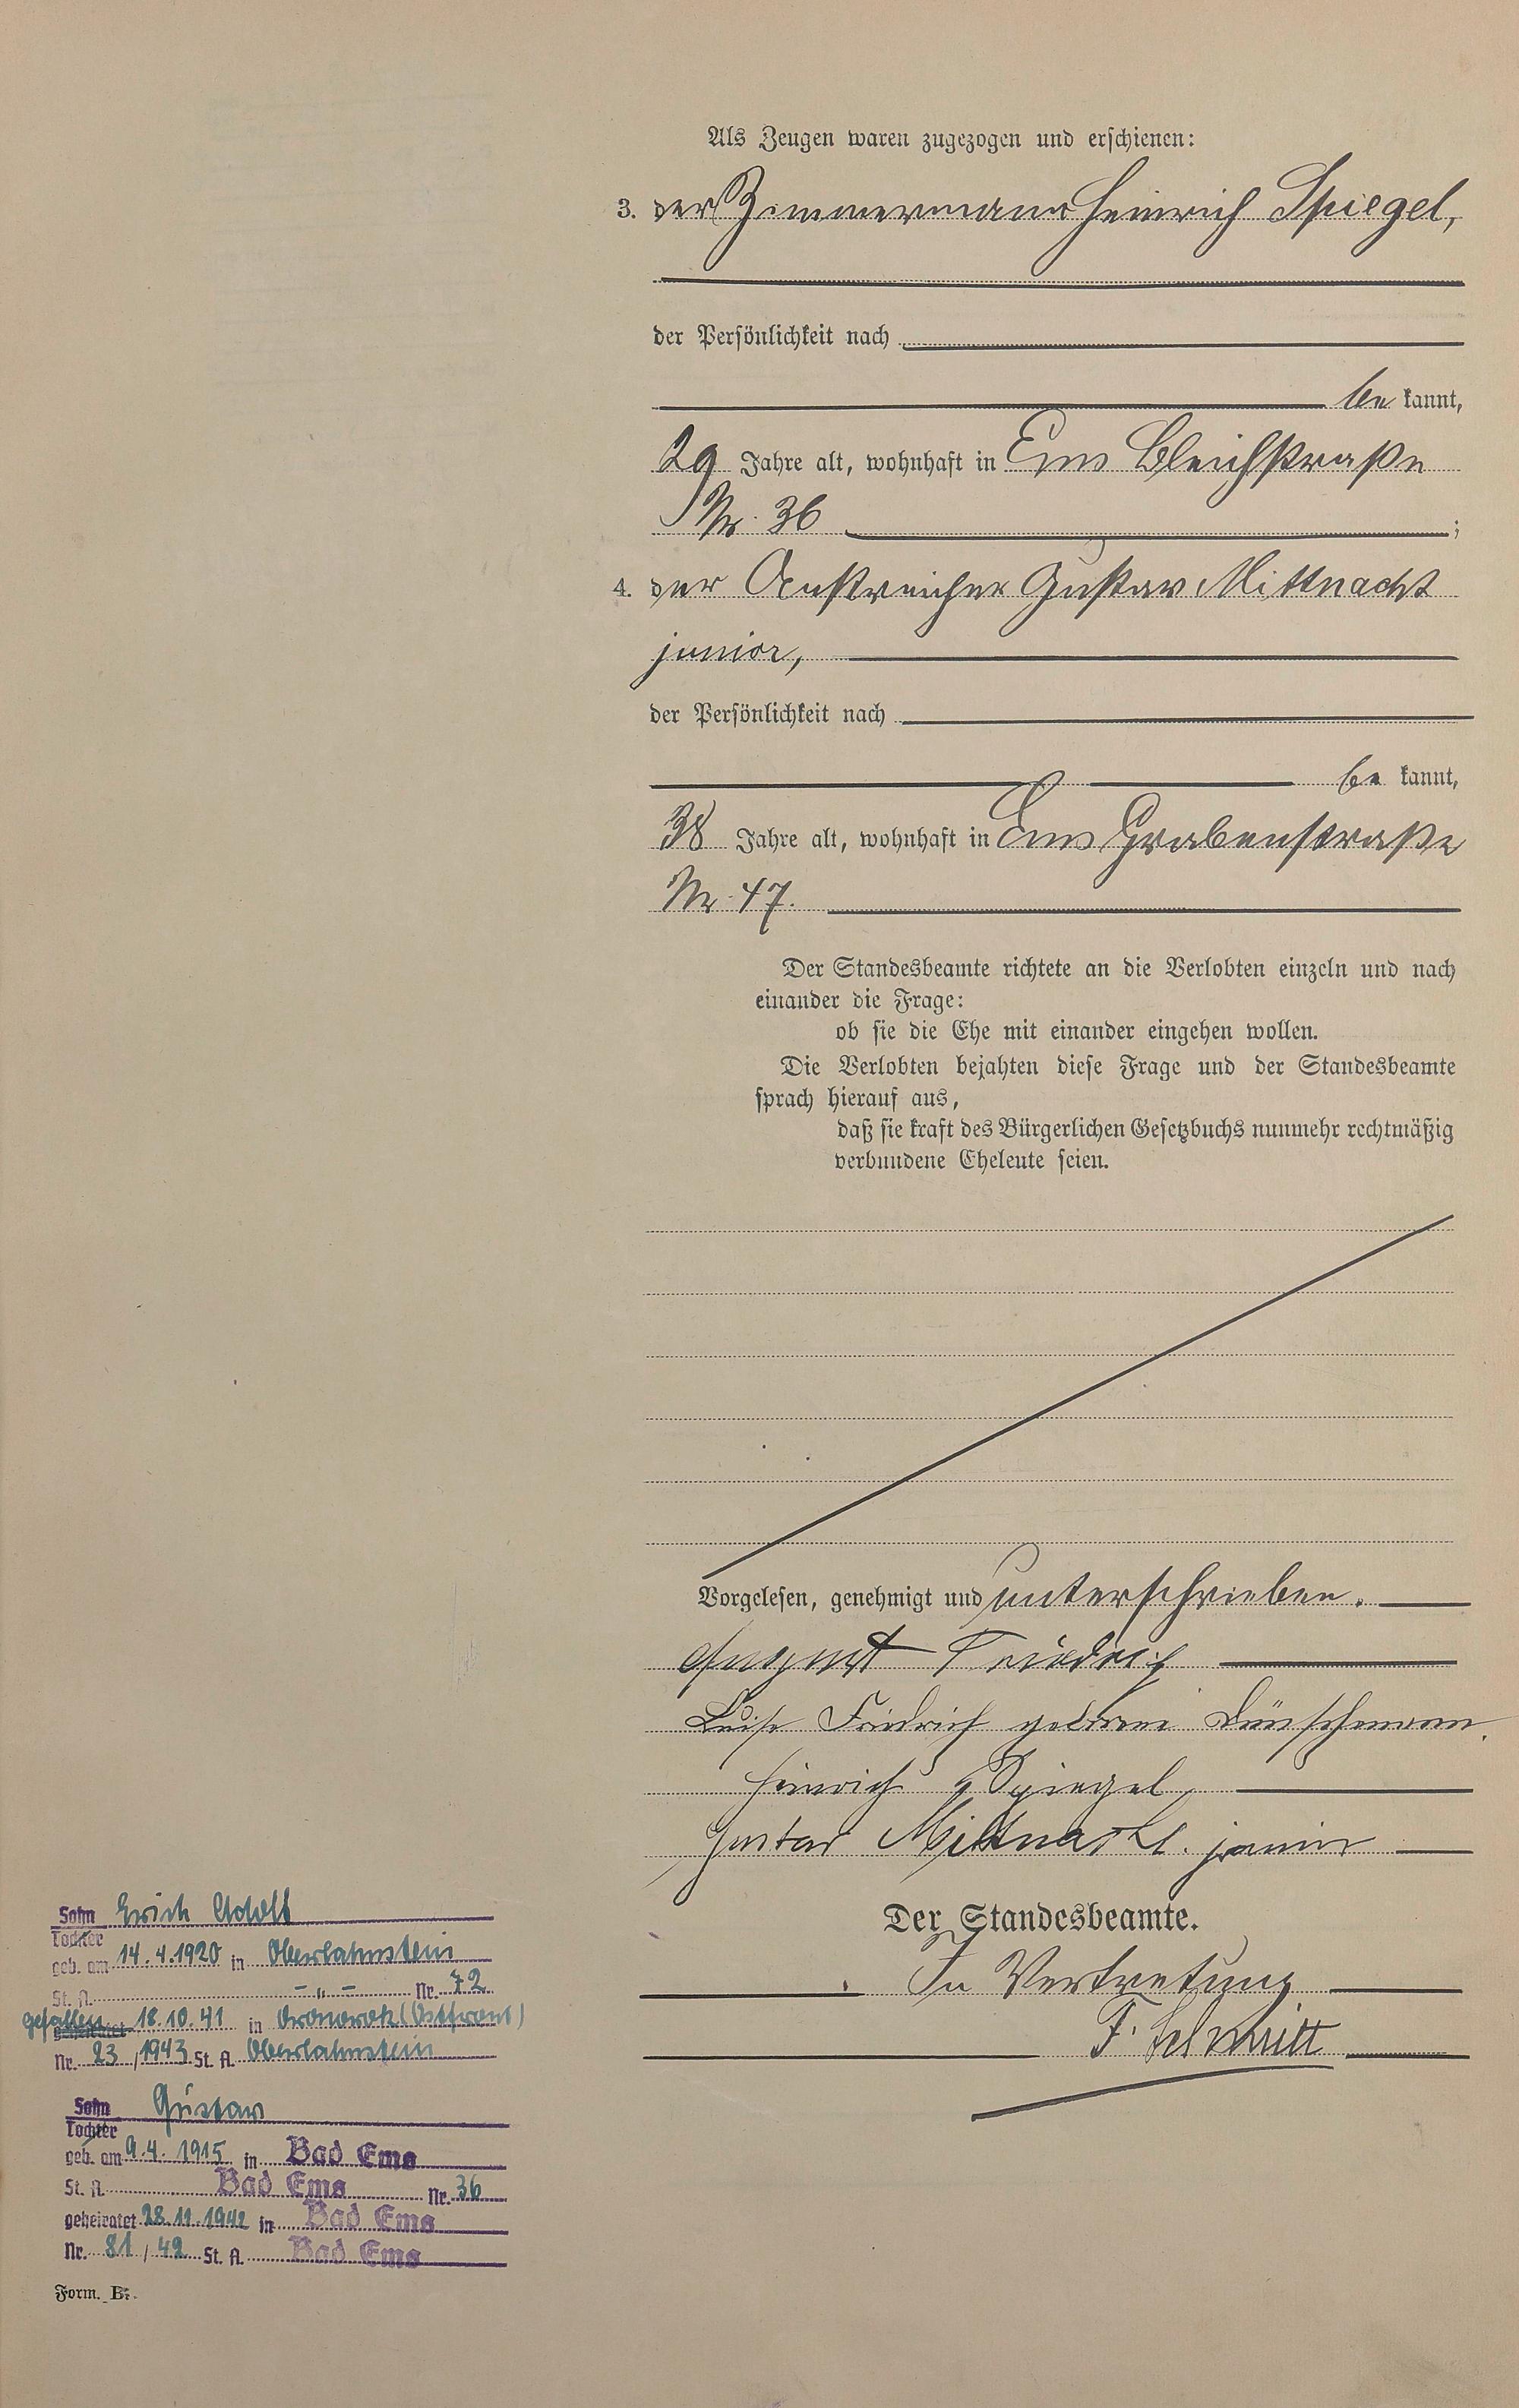 Als Zeugen waren zugezogen und erschienen:
3. der Zimmermann Heinrich Spiegel,
der Persönlichkeit nach
be kannt,
29 Jahre alt, wohnhaft in Ems Bleichstraße
Nr. 36 ;
4. der Anstreicher Gustav Mittnacht
junior,
der Persönlichkeit nach
be kannt,
38 Jahre alt, wohnhaft in Ems Grabenstraße
Nr. 47.
Der Standesbeamte richtete an die Verlobten einzeln und nach
einander die Frage:
ob sie die Ehe mit einander eingehen wollen.
Die Verlobten bejahten diese Frage und der Standesbeamte
sprach hierauf aus,
daß sie kraft des Bürgerlichen Gesetzbuchs nunmehr rechtmäßig
verbundene Eheleute seien.
Vorgelesen, genehmigt und unterschrieben.
August Friedrich
Luise Friedrich geborene Dünschmann.
Heinrich Spiegel
Gustav Mittnacht. junior
Der Standesbeamte.
In Vertretung
F. Schmitt
Sohn Erich Adolf
Tochter
geb. am 14.4.1920 in Oberlahnstein
St. A. -"- Nr. 72
gefallen geheiratet 18.10.41 in (Ostfront)
Nr. 23/1943 St. A. Oberlahnstein
Sohn Gustav
Tochter
geb. am 9.4. 1915 in Bad Ems
St. A. Bad Ems Nr. 36
geheiratet 28.11.1942 in Bad Ems
Nr. 81/42 St. A. Bad Ems
Form. B.